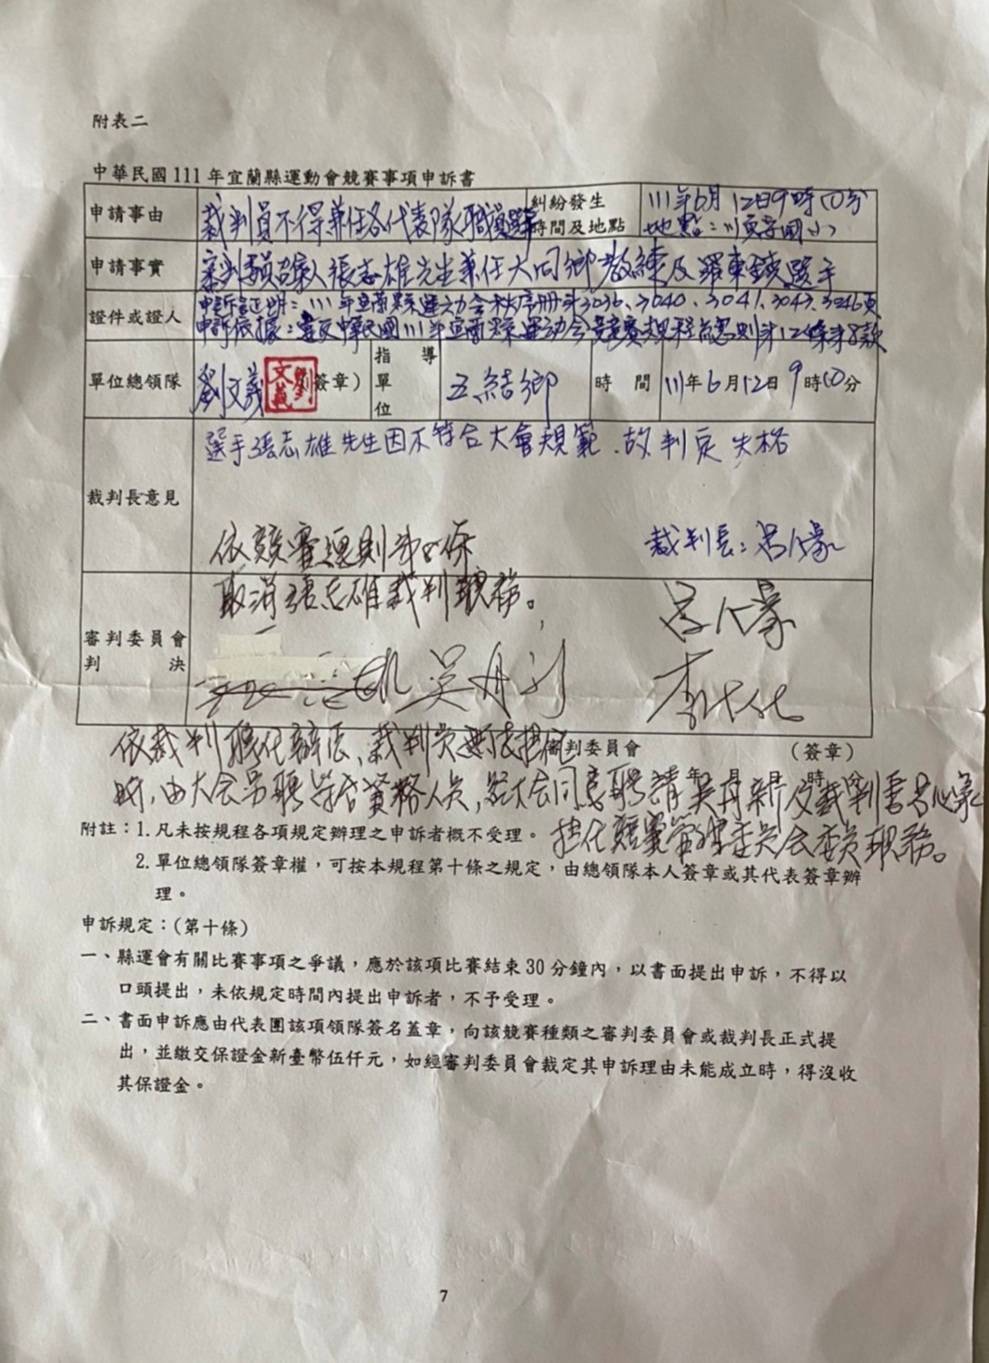 附表二
中華民國111年宜蘭縣運動會競賽事項申訴書
申請事由
裁判員不得兼任各代表隊職員選手
糾紛發生
時間及地點
111年6月12日9時10分
地點:順安國小
申請事實
張志雄先生兼任大同鄉教練及羅東鎮選手
證件或證人
申訴証明:111年宜蘭縣運動會秩序冊第3036、3040、3041、3043、3046頁
申訴依據:違反中華民國111年宜蘭縣運動會競賽規程總則第12條第8款
單位總領隊
劉文義
(簽章)
指導單位
五結鄉
時間
111年6月12日9時10分
裁判長意見
選手張志雄先生因不符合大會規範、故判定失格
裁判長:
依競賽規則第
取消張志雄裁判職務。
審判委員會
判決
審判委員會
(簽章)
依裁判職任辦法、裁判員無法擔任
年 月 日 時
時,由大會另聘 資格人員,經大會同意聘請吳丹新及裁判長
擔任競賽管理委員會委員職務。
附註:1.凡未按規程各項規定辦理之申訴者概不受理。
2.單位總領隊簽章權,可按本規程第十條之規定,由總領隊本人簽章或其代表簽章辦
理。
申訴規定:(第十條)
一、縣運會有關比賽事項之爭議,應於該項比賽結束30分鐘內,以書面提出申訴,不得以
口頭提出,未依規定時間內提出申訴者,不予受理。
二、書面申訴應由代表團該項領隊簽名蓋章,向該競賽種類之審判委員會或裁判長正式提
出,並繳交保證金新臺幣伍仟元,如經審判委員會裁定其申訴理由未能成立時,得沒收
其保證金。
7